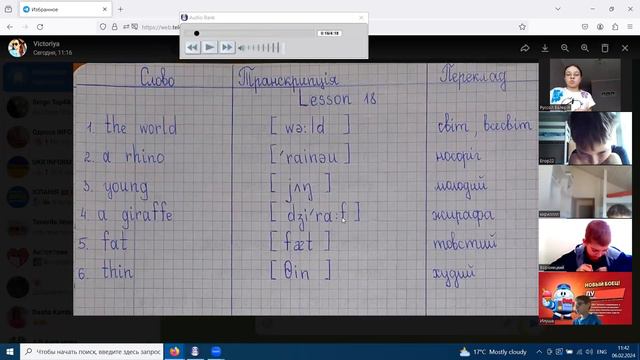 Избранное
https://web.tele
Audio Bank
0:16/4:18
Victoriya
Сегодня, 11:16
Слово Транскрипція Переклад
Lesson 18
1. the world [ wə:ld ] світ, всесвіт
2. a rhino [ ′rainəu ] носоріг
3. young [ jʌŋ ] молодий
4. a giraffe [ dʒi′ra:f ] жирафа
5. fat [ fæt ] товстий
6. thin [ θin ] худий
Егор22
кирилллл
НОВЫЙ БОЕЦ!
Илуша
Чтобы начать поиск, введите здесь запрос
17°C Mostly cloudy
ENG
11:42
06.02.2024